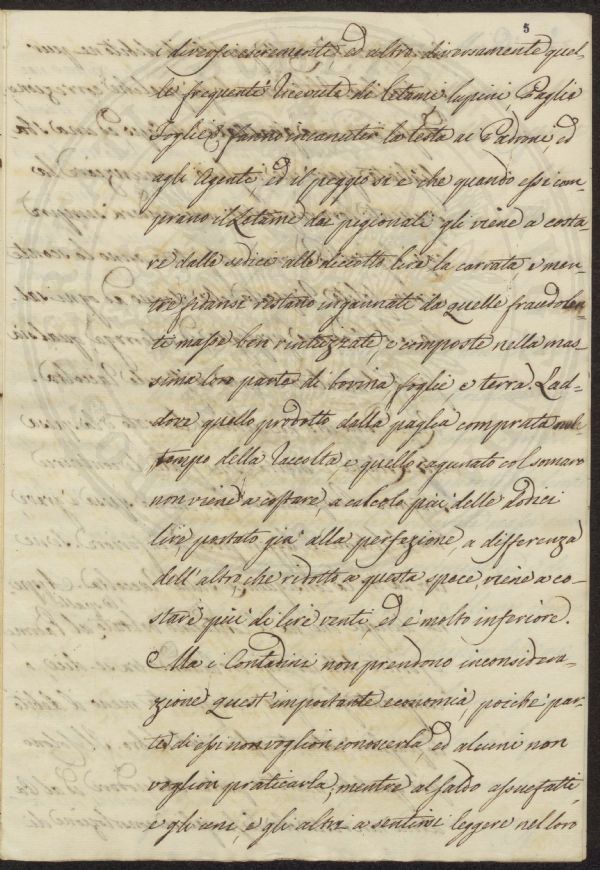 5
i diversi escrementi, ed altro, diversamente quel-
le frequenti Raccolte di Letami lupini, Paglia
Foglie, fanno incanutir la testa ai Padroni ed
agli Agenti ed il peggio si è che quando essi com-
prano il Letame dai pigionali gli viene a costa
re dalle sedici alle diciotto lire la carrata e men-
tre fidansi restano ingannati da quelle fraudolen-
ti masse ben rintuzzate, e composte nella mas-
sima loro parte di bovina foglie, e terra. Lad-
dove quello prodotto dalla paglia comprata nel
tempo della Raccolta e quello ragunato col somaro
non viene a costare, a calcolo più delle dodici
lire, portato già alla perfezione, a differenza
dell'altro, che ridotto a questa spece, viene a co-
stare più di lire venti, ed è molto inferiore.
Ma i Contadini non prendono inconsidera-
zione quest'importante economia, poichè par-
te di essi non voglion conoscerla, ed alcuni non
voglion praticarla, mentre al saldo assuefatti,
e gli uni, e gli altri a sentirsi leggere nel loro